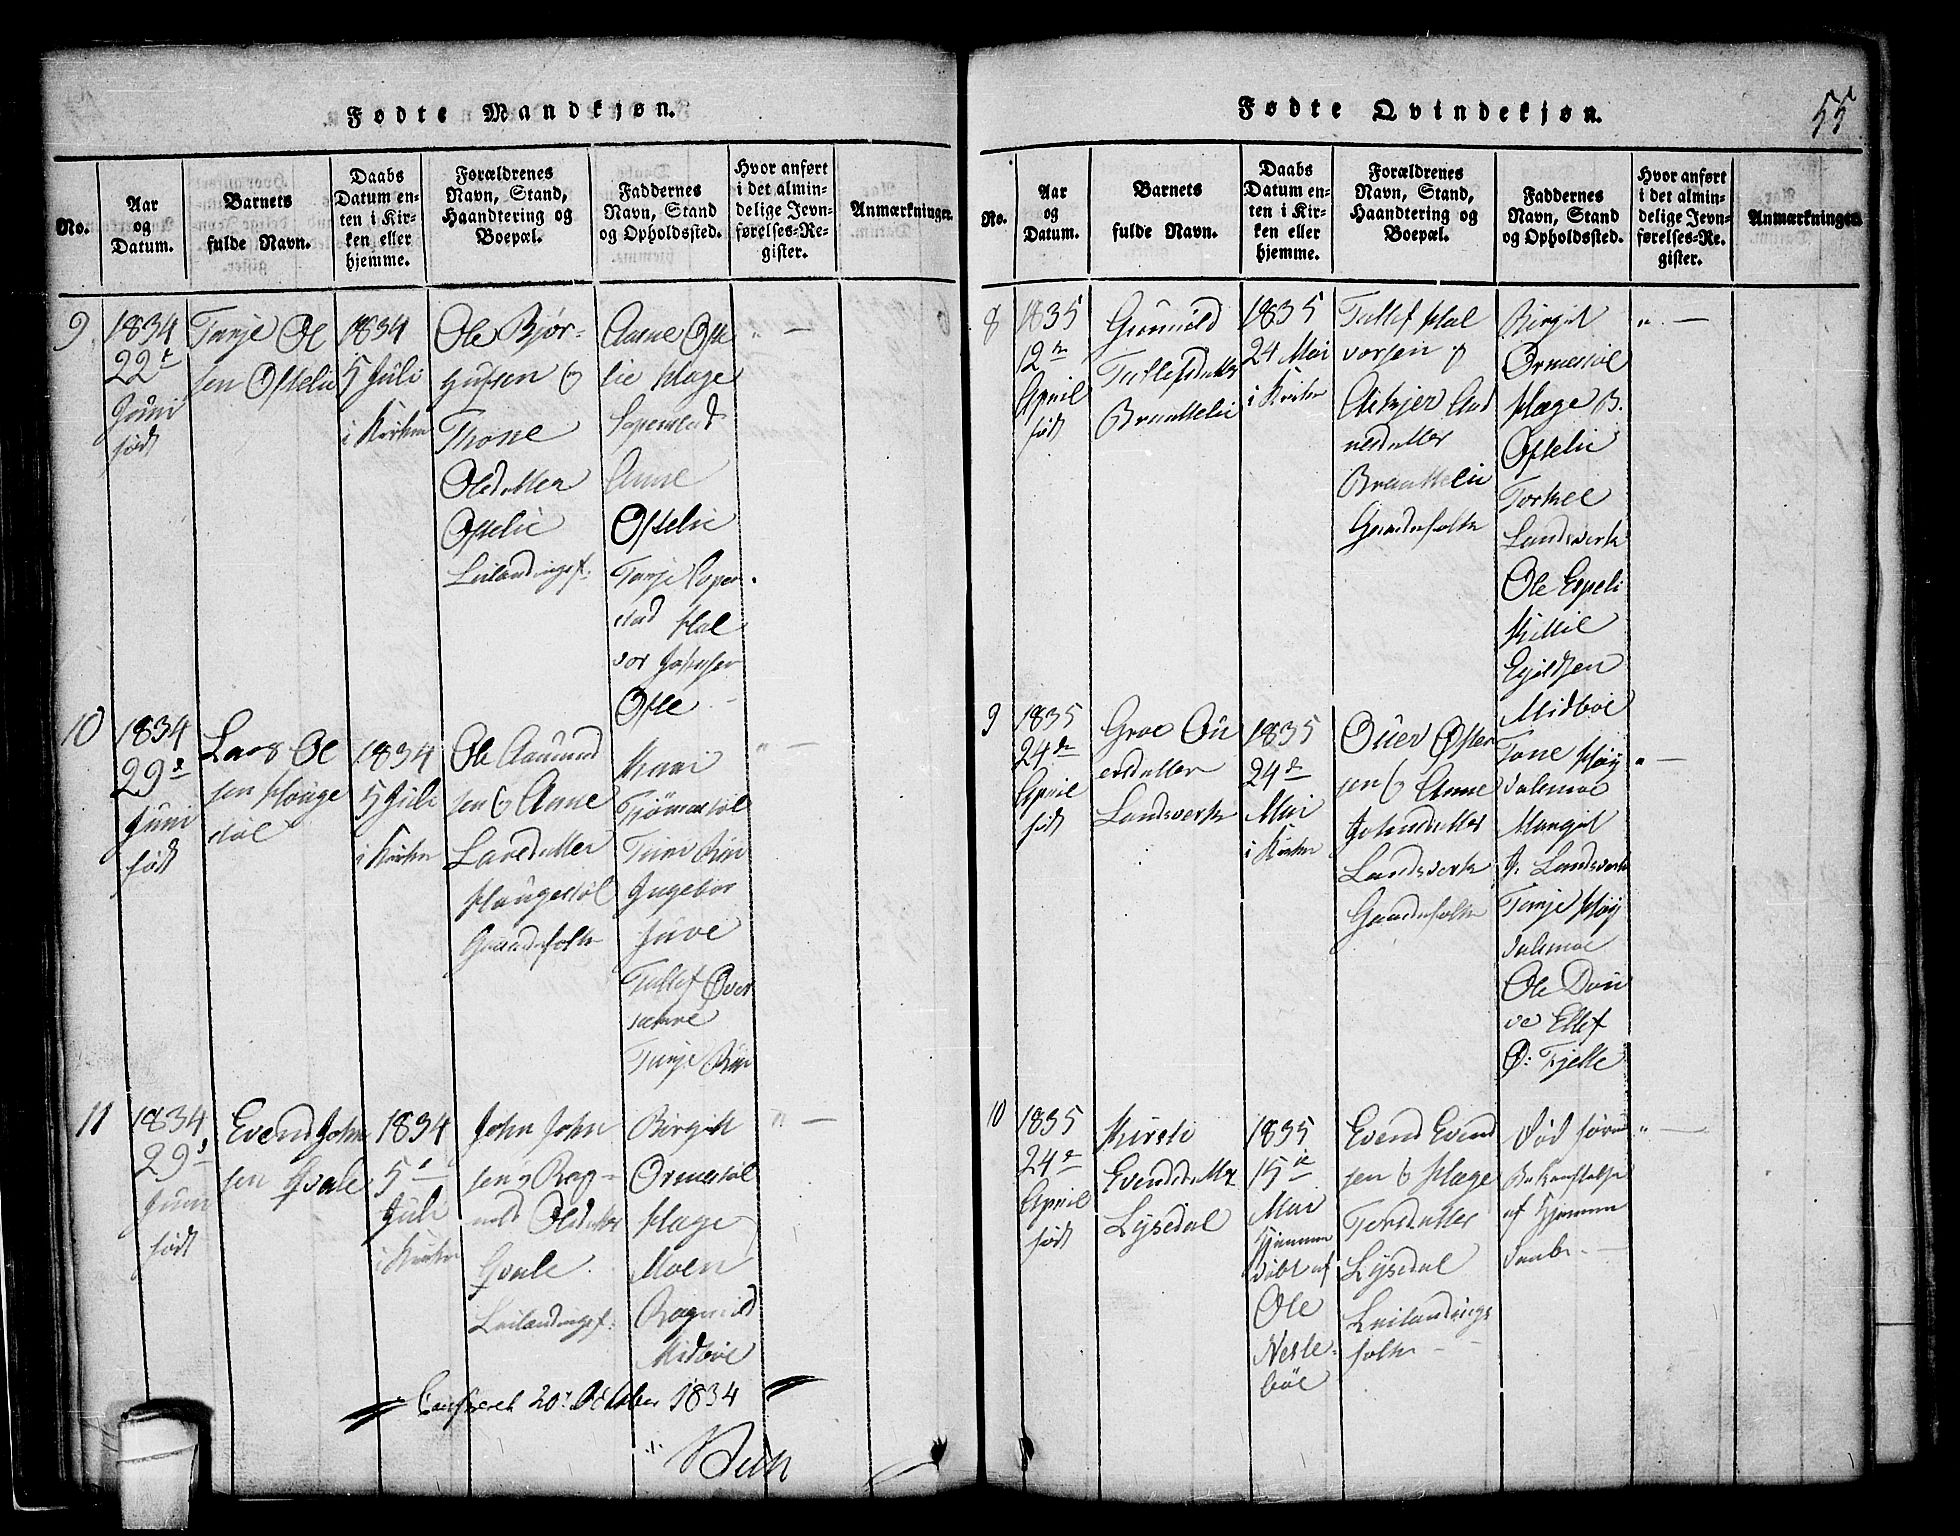 Fødte Mandkjøn.
No.
Aar
og
Datum.
Barnets
fulde Navn.
Daabs
Datum en-
ten i Kir-
ken eller
hjemme.
Forældrenes
Navn, Stand,
Haandtering og
Boepæl.
Faddernes
Navn, Stand
og Opholdssted.
Hvor anført
i det almin-
delige Jevn-
førelses-Re-
gister.
Anmærkninger.
9
1834
22
Juni
født
Tarje Ol
sen Oftelie
1834
5 Juli
i Kirken
Ole Bjør-
gufsen &
Thone
Olsdatter
Oftelie
Leilændingsf.
Anne Ofte
lie Hæge
Anne
Oftelie
Tarje
stad Hal
vor
Ofte
" —
10
1834
29
Juni
født
Lars Ol
sen Houge
støl
1834
5 Juli
i Kirken
Ole Aamund
sen & Anne
Larsdatter
Hougestøl
Gaardsfolk
Kari
Tjømestøl
Ingebor
Juve
Tallef Øver
Tarje
" —
11
1834
29
Juni
født
Evend John
sen Qvale
1834
5
Juli
i Kirken
John John
sen & Rag-
nild Olsdatter
Qvale
Leilændingsf.
Birgit
Ormestøl
Hæge
Moen
Ragnild
Midbøe
" —
Confereret 20 October 1834
Fødte Qvindekjøn.
55
No.
Aar
og
Datum.
Barnets
fulde Navn.
Daabs
Datum en-
ten i Kir-
ken eller
hjemme.
Forældrenes
Navn, Stand,
Haandtering og
Boepæl.
Faddernes
Navn, Stand
og Opholdssted.
Hvor anført
i det almin-
delige Jevn-
førelses-Re-
gister.
Anmærkninger.
8
1835
12
April
født
Gunnild
Tallefsdatter
Brattelie
1835
24 Mai
i Kirken
Tallef Hal
vorsen &
Askjer And
resdatter
Brattelie
Gaardsfolk
Birgit
Ormestøl
Hæge B.
Oftelie
Torkel
Landsverk
Ole Espeli
Killie
Egildsen
Midbøe
" —
9
1835
24de
April
født
Groe Ou
ersdatter
Landsverk
1835
24de
Mai
i Kirken
Ouer Østen
sen & Anne
Johnsdatter
Landsverk
Gaardsfolk
Tone Høy
dalsmoe
Margit
J. Landsverk
Tarje Høy
dalsmoe
Ole Dou
ve Ellef
Ø: Tjelle
" —
10
1835
24de
April
født
Kirsti
Evendsdatter
Lysedal
1835
15
Mai
Hjemme
døbt af
Ole
Nesle-
bøe
Evend Evend
sen & Hæge
Tersdatter
Lysedal
Leilændings
folk —
Død førend
Bekræftelse
af Hjemme
daab. —
" —